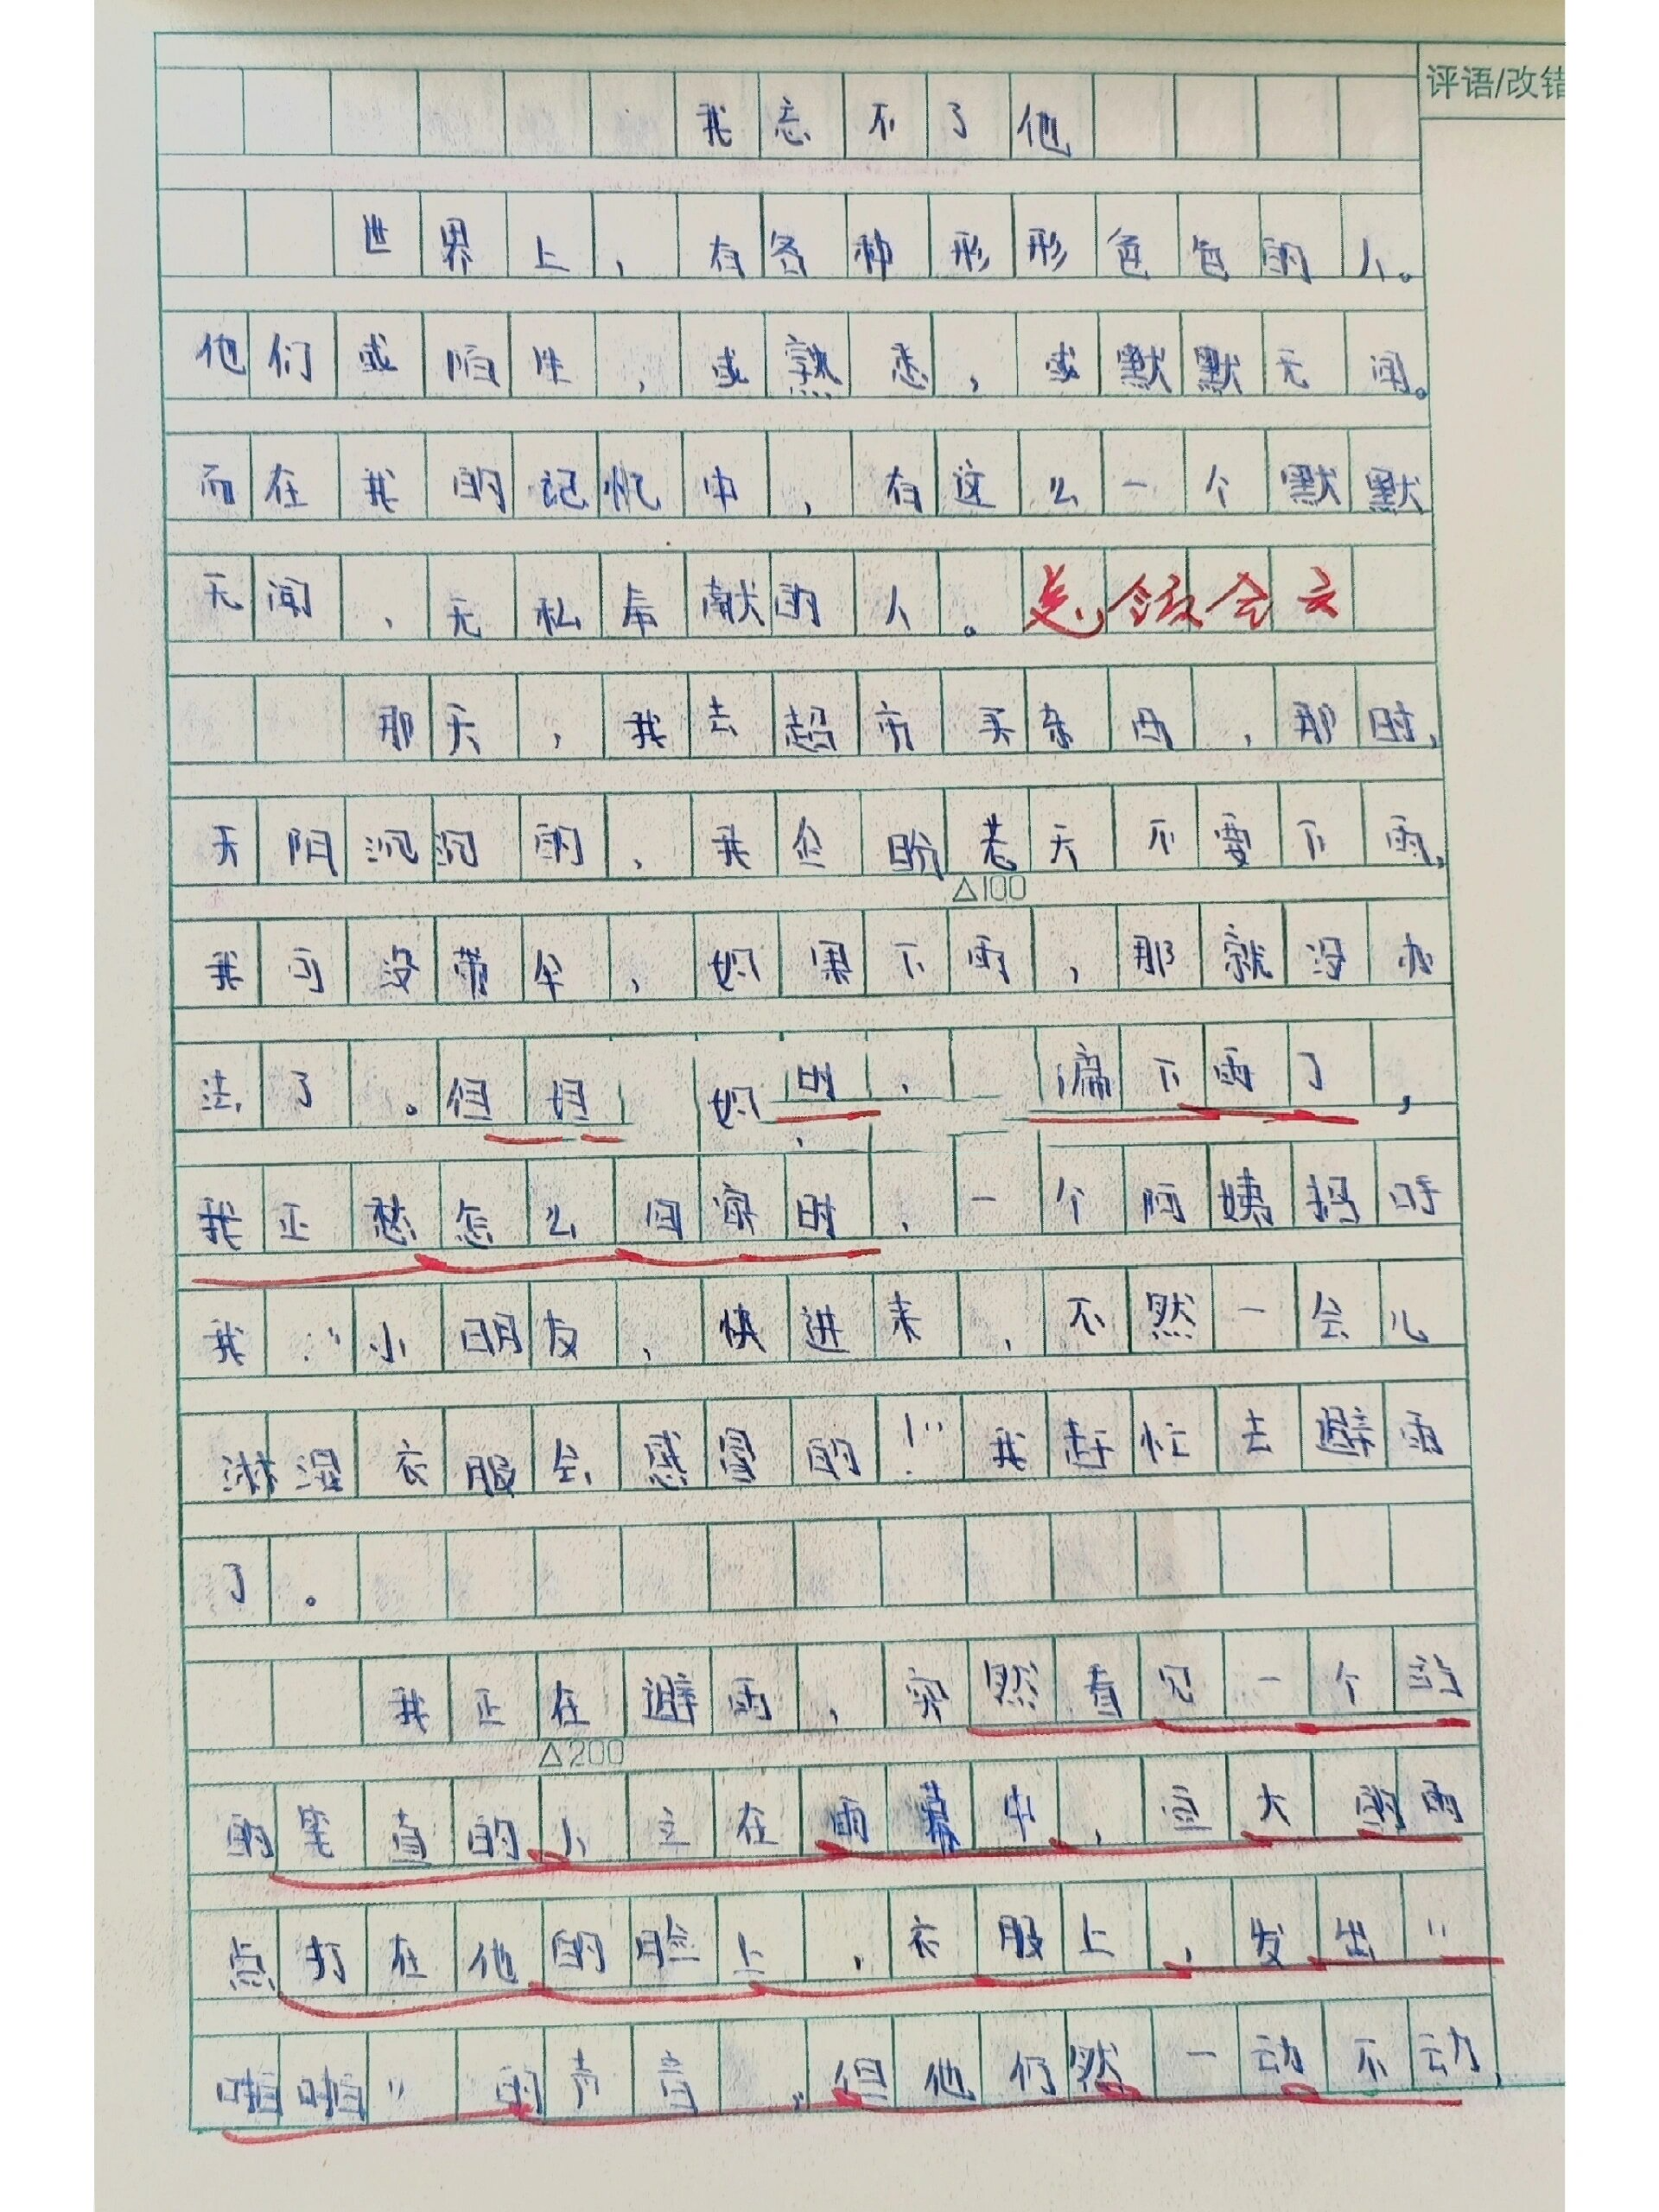 评语/改错
我忘不了他
世界上，有各种形形色色的人。
他们或陌生，或熟悉，或默默无闻。
而在我的记忆中，有这么一个默默
无闻、无私奉献的人。总领全文
那天，我去超市买东西，那时，
天阴沉沉的，我企盼老天不要下雨，
△100
我可没带伞，如果下雨，那就没办
法了。但 如 偏下雨了，
我正愁怎么回家时，一个阿姨招呼
我：“小朋友，快进来，不然一会儿
淋湿衣服会感冒的！”我连忙去避雨
了。
我正在避雨，突然看见一个站
△200
的笔直的人立在雨幕中，豆大的雨
点打在他的脸上，衣服上，发出“
啪啪”的声音。但他仍然一动不动